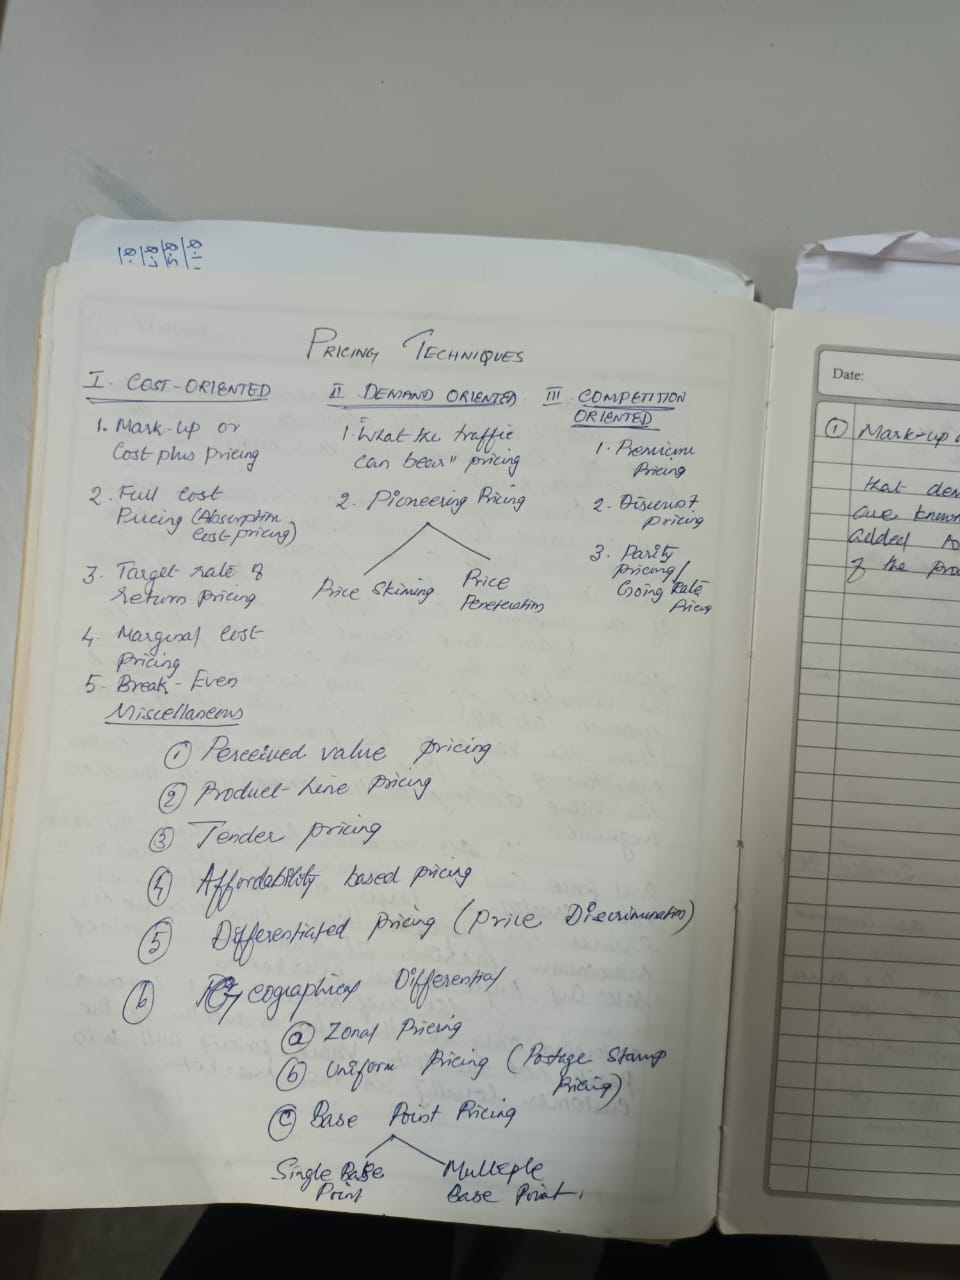 PRICING TECHNIQUES
I. COST-ORIENTED
1. Mark-up or
Cost plus pricing
2. Full Cost
Pricing (Absorption
Cost-pricing)
3. Target rate of
return pricing
4. Marginal Cost
pricing
5. Break-Even
II DEMAND ORIENTED
1. "What the traffic
can bear" pricing
2. Pioneering Pricing
Price Skiming
Price
Penetration
III COMPETITION
ORIENTED
1. Premium
Pricing
2. Discount
pricing
3. Parity
pricing/
Going Rate
Pricing
Miscellaneous
① Perceived value pricing
② Product-Line Pricing
③ Tender pricing
④ Affordability based pricing
⑤ Differentiated Pricing (Price Discrimination)
⑥ Geographical Differential
ⓐ Zonal Pricing
ⓑ Uniform Pricing (Postage Stamp
Pricing)
ⓒ Base Point Pricing
Single Base
Point
Multiple
Base Point
Date:
① Mark-up
that
are known
added to
of the